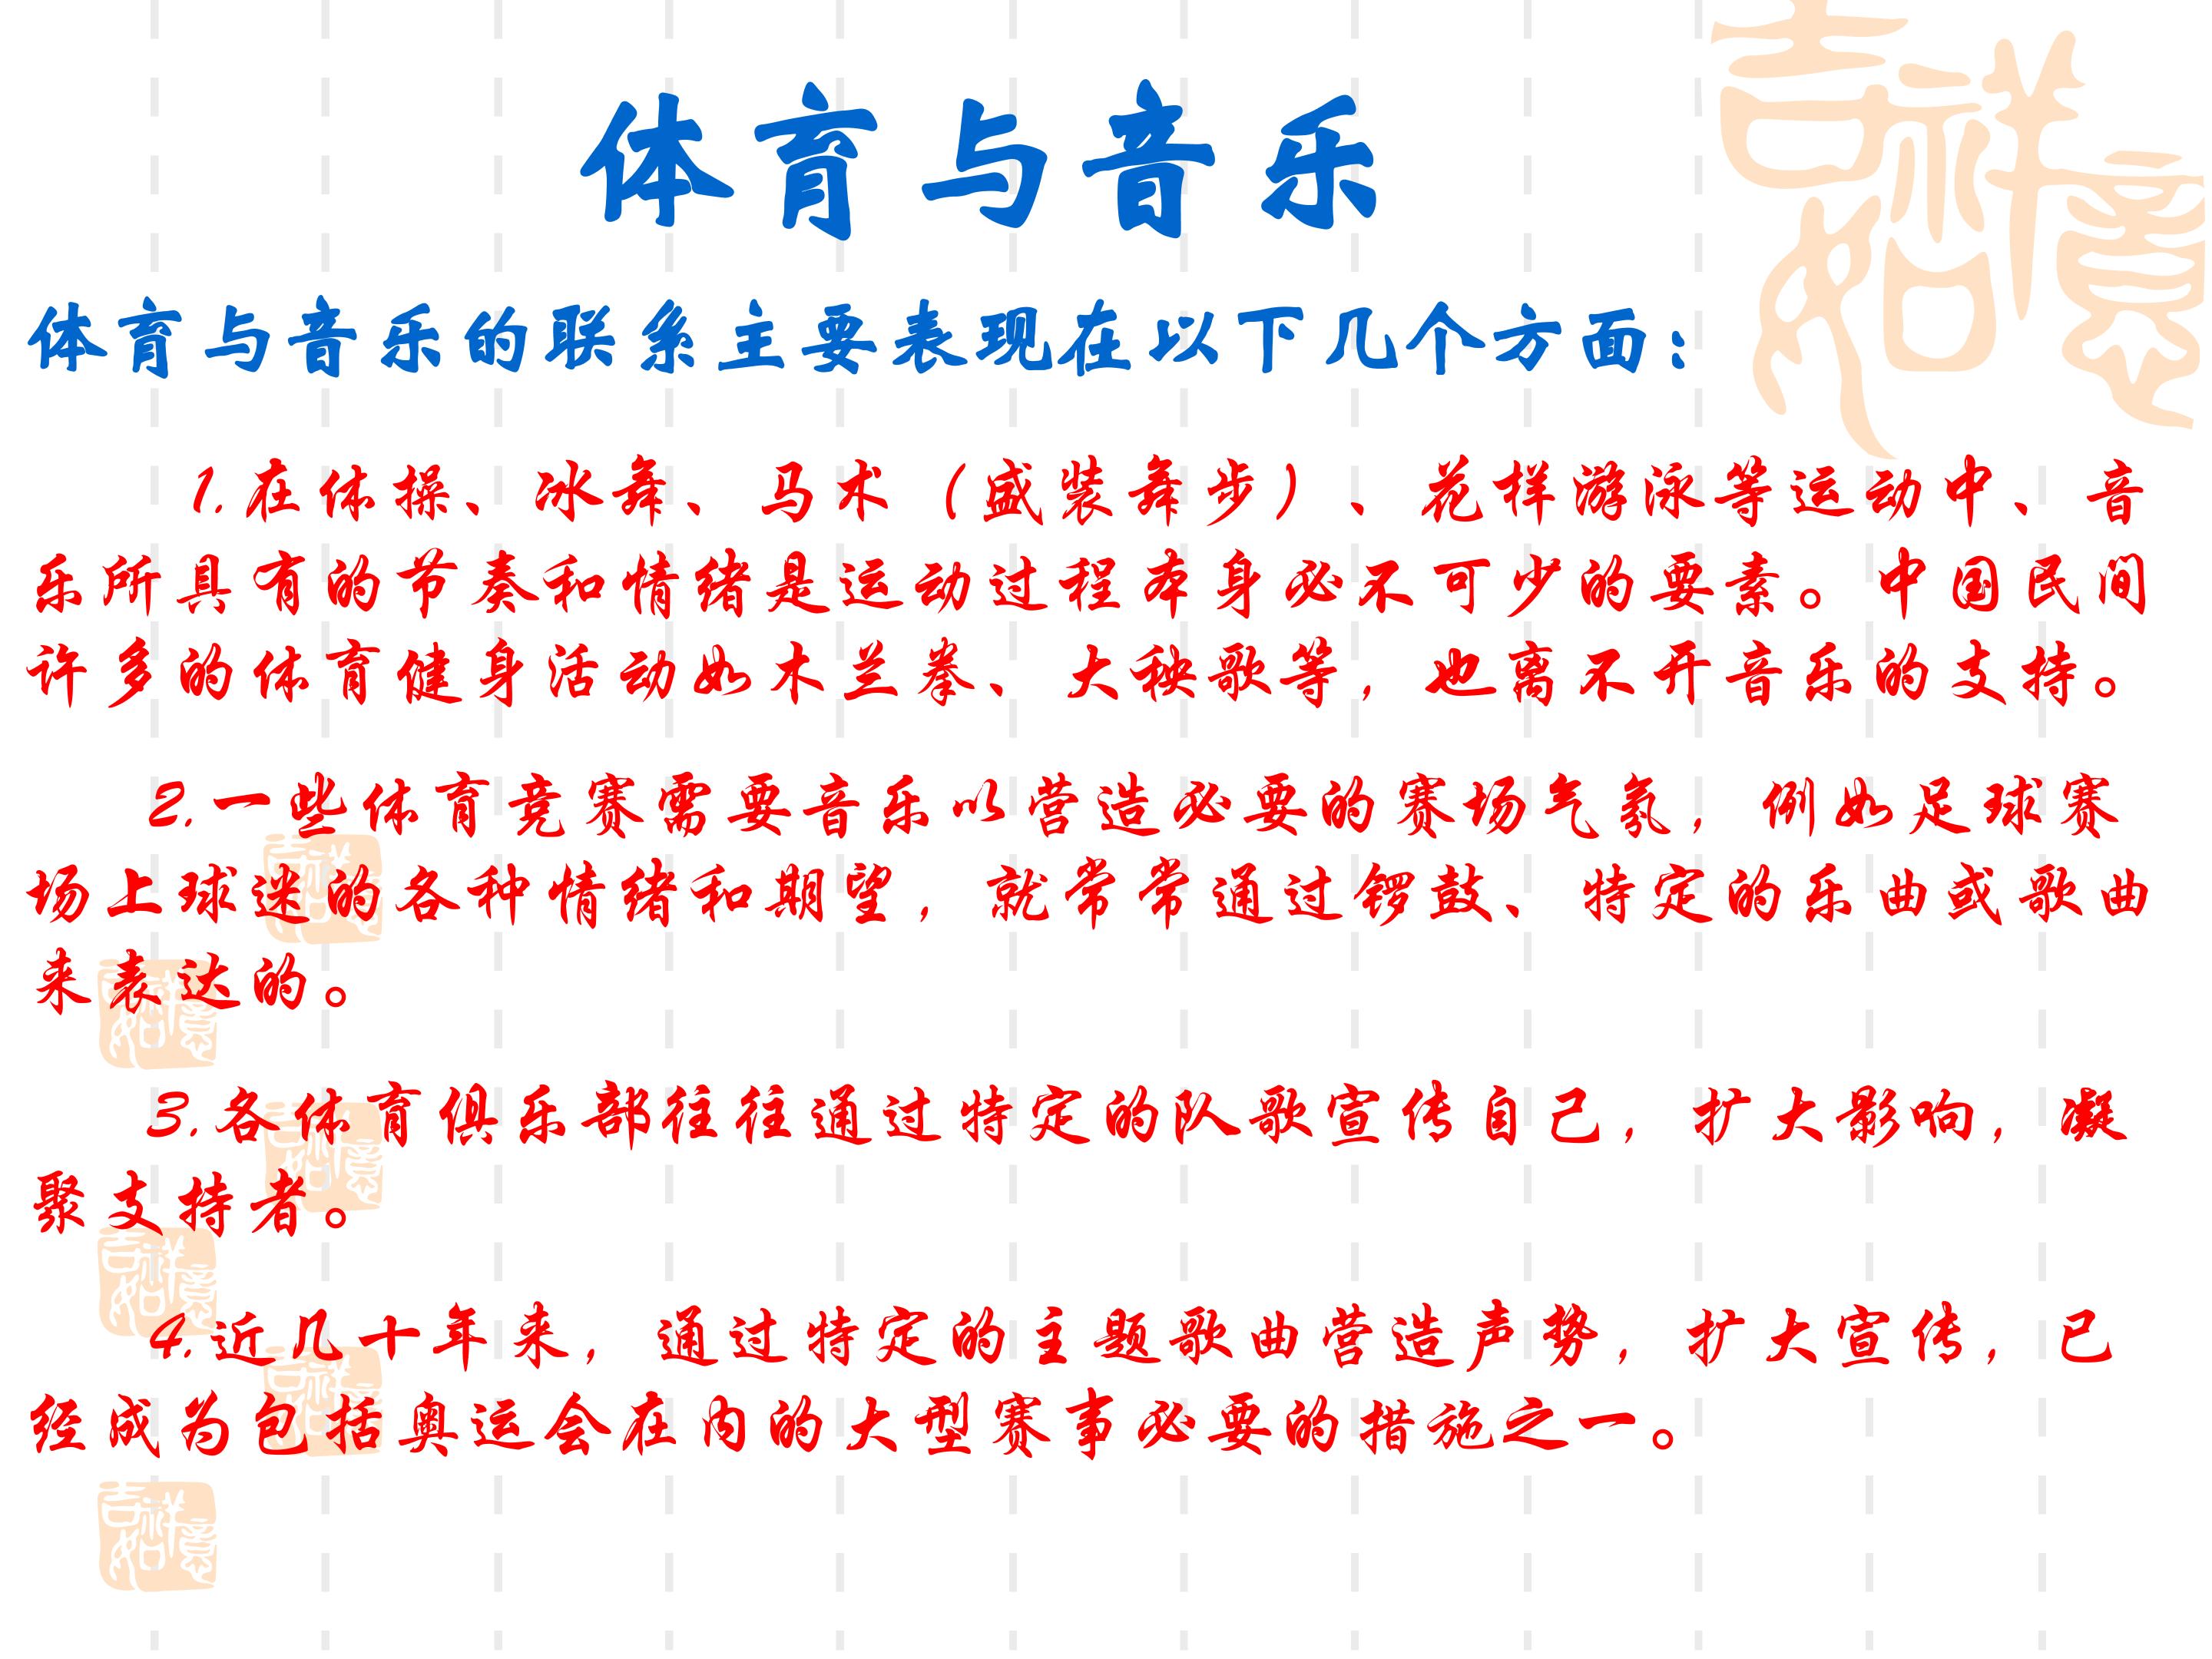 体育与音乐
体育与音乐的联系主要表现在以下几个方面：
1.在体操、冰舞、马术（盛装舞步）、花样游泳等运动中、音
乐所具有的节奏和情绪是运动过程本身必不可少的要素。中国民间
许多的体育健身活动如木兰拳、大秧歌等，也离不开音乐的支持。
2.一些体育竞赛需要音乐以营造必要的赛场气氛，例如足球赛
场上球迷的各种情绪和期望，就常常通过锣鼓、特定的乐曲或歌曲
来表达的。
3.各体育俱乐部往往通过特定的队歌宣传自己，扩大影响，凝
聚支持者。
4.近几十年来，通过特定的主题歌曲营造声势，扩大宣传，已
经成为包括奥运会在内的大型赛事必要的措施之一。
吉祥如意
吉祥如意
吉祥如意
吉祥如意
吉祥如意
吉祥如意
吉祥如意